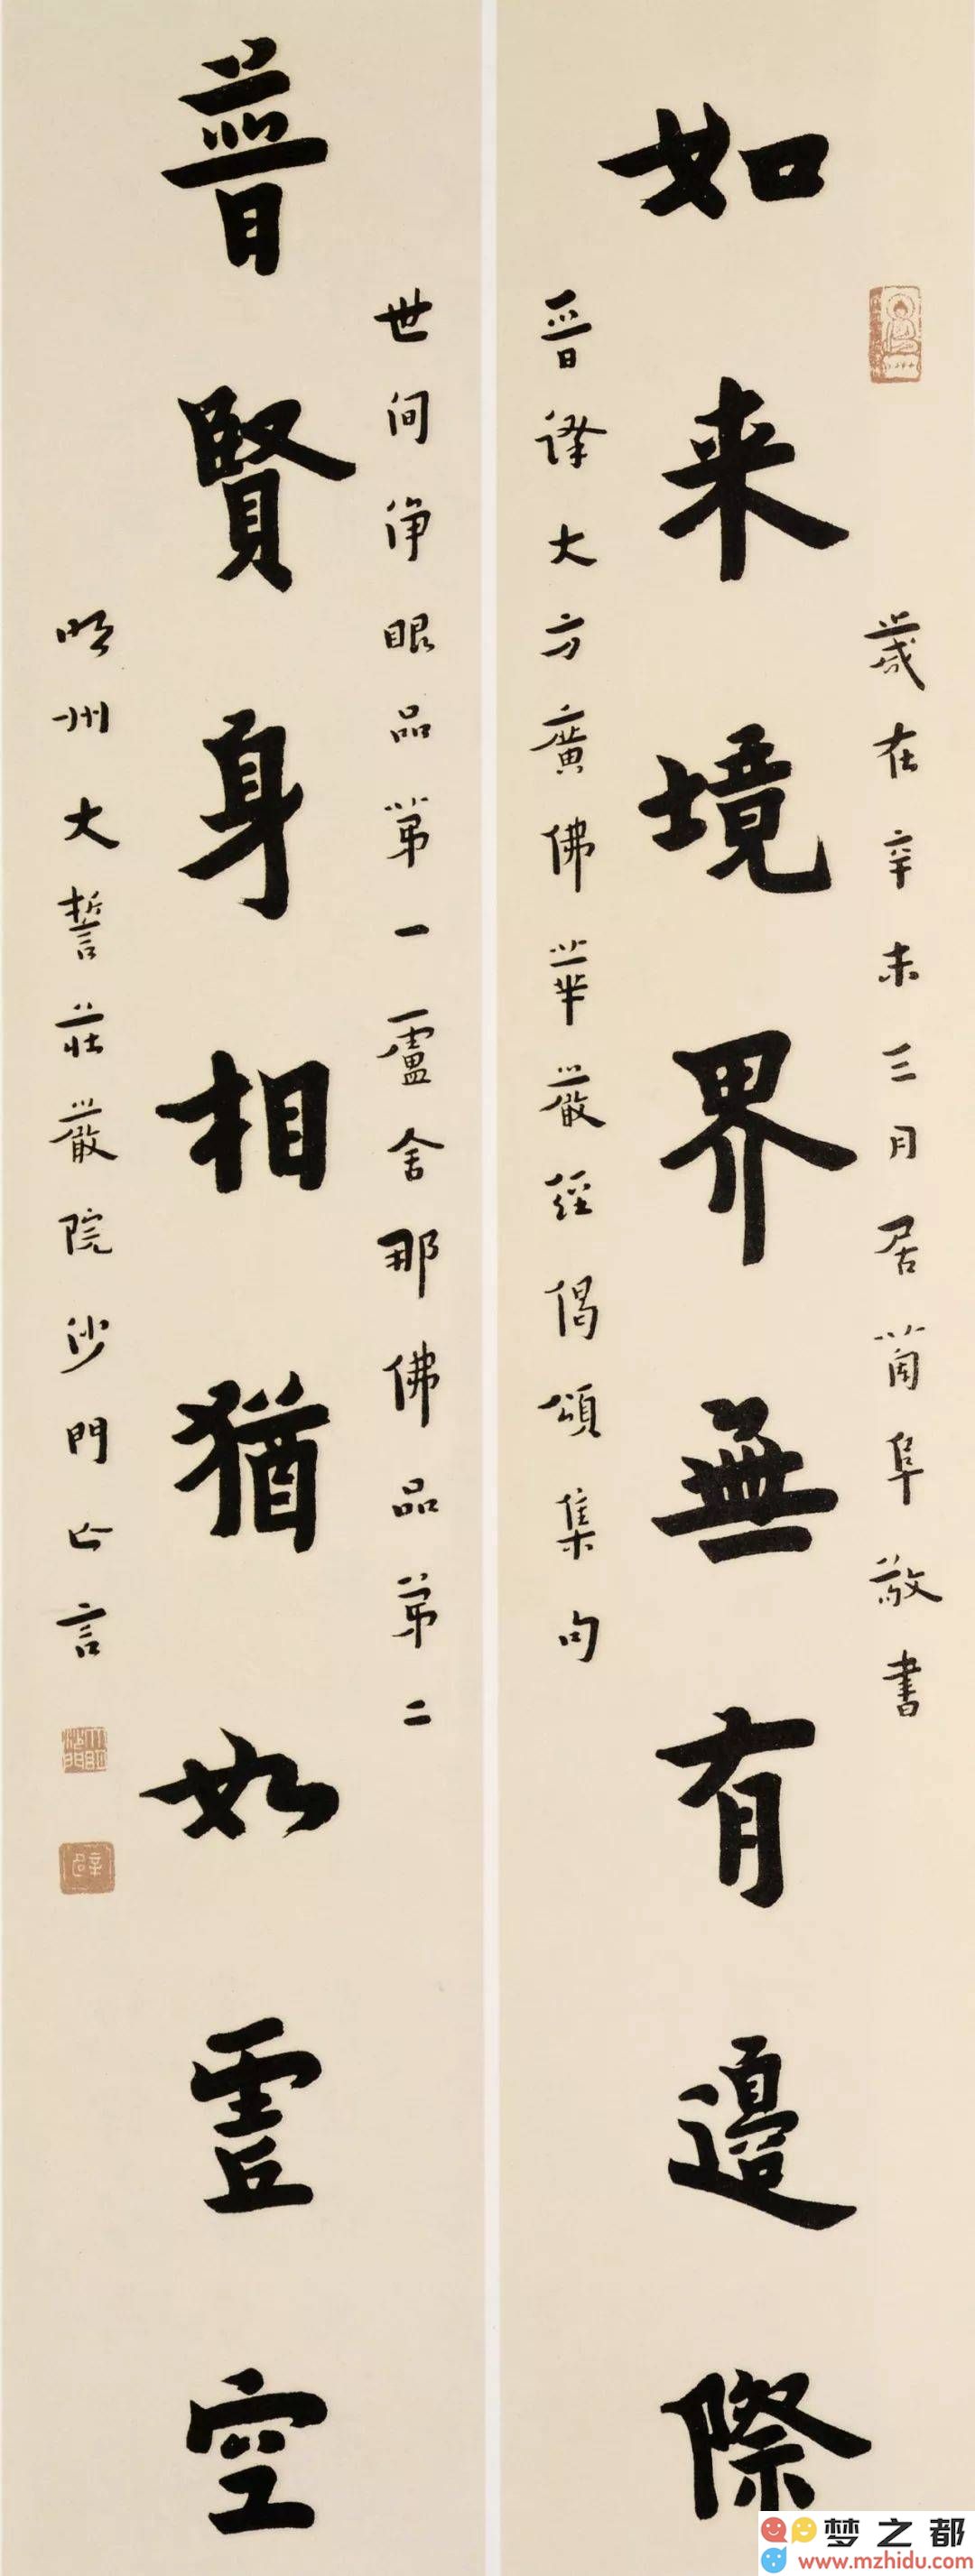 歲在辛未三月居蘭阜敬書
如来境界無有邊際
晉譯大方廣佛華嚴經偈頌集句
世間淨眼品第一盧舍那佛品第二
普賢身相猶如虛空
明州大誓莊嚴院沙門亡言
梦之都
www.mzhidu.com